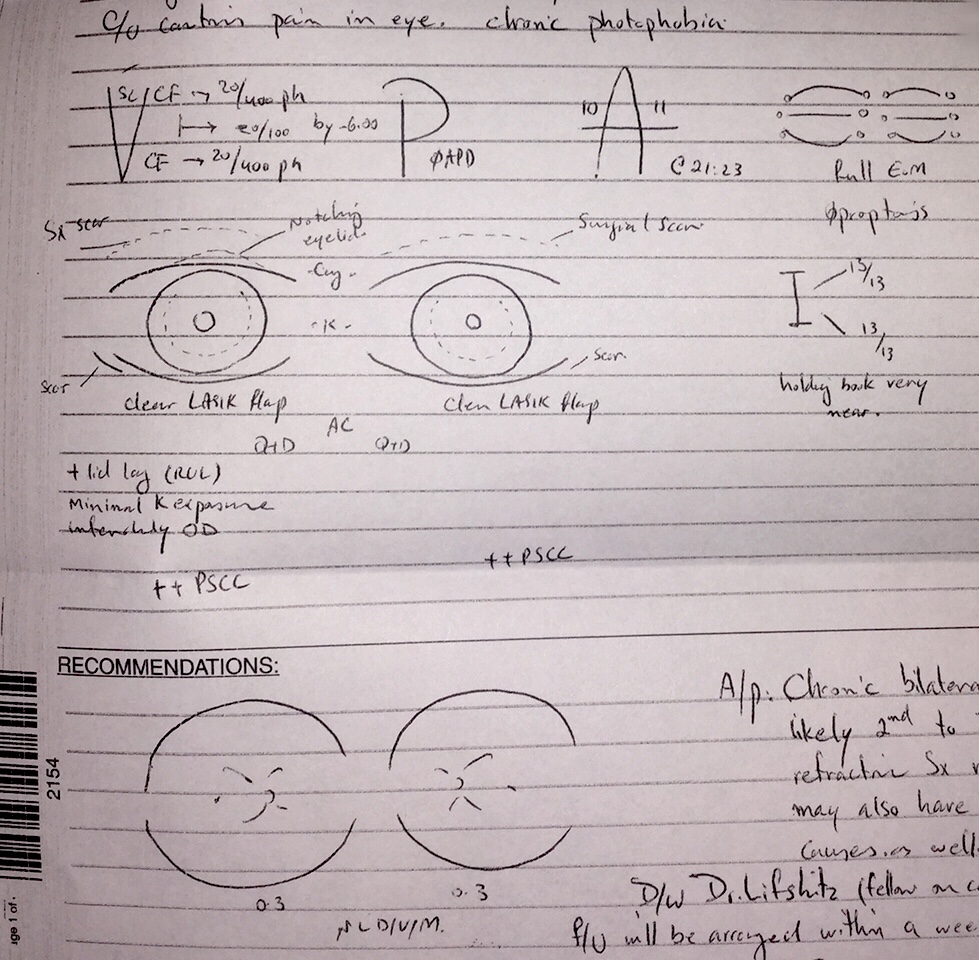 c/o constant pain in eye. chronic photophobia
V SC CF → 20/400 ph P A 10 11
↦ 20/100 by -6.00
CF → 20/400 ph ØAPD @ 21:23 Full EOM
Sx scar Notching eyelid Surgical scar Øproptosis
-K- 13/13
13/13
scar scar
clear LASIK flap clear LASIK flap holding book very near.
AC
D+Q D+Q
+ lid lag (RUL)
Minimal K exposure
OD
++ PSCC
++ PSCC
RECOMMENDATIONS:
A/p: Chronic bilatera
likely 2nd to
refractive Sx
may also have
causes as well
0.3 0.3
D/W Dr. Lifshitz (fellow on c
D/V/M.
f/u will be arranged within a wee
2154
age 1 of